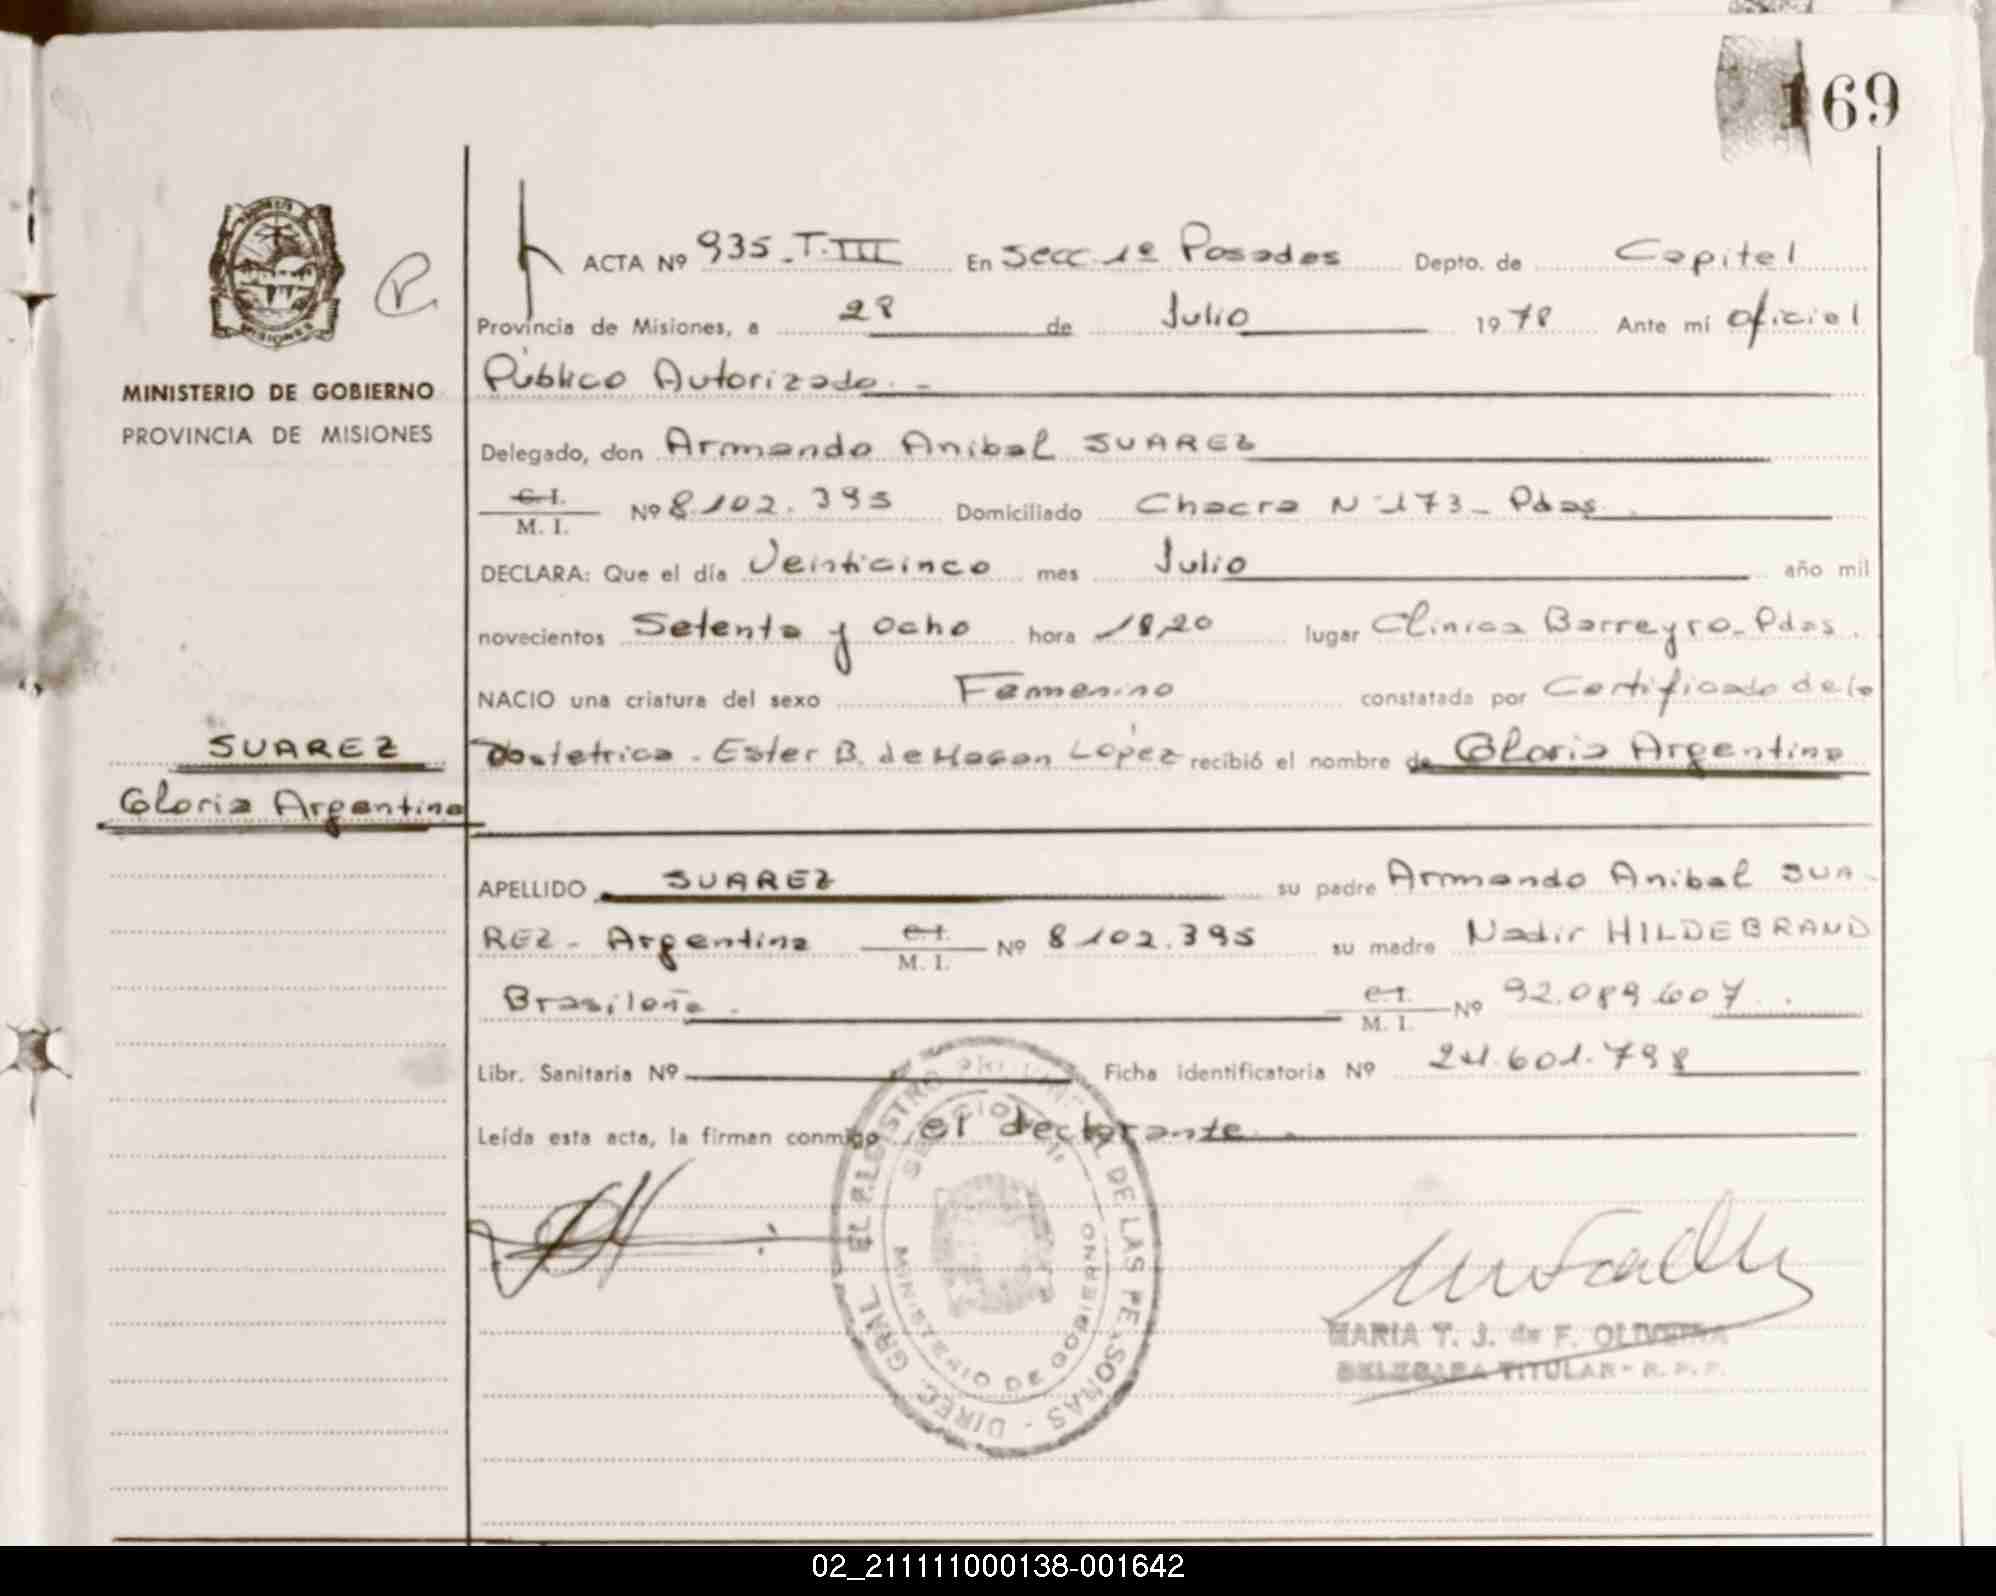 169
ACTA Nº 935 - T. III En Secc 1ª Posadas Depto. de Capital
Provincia de Misiones, a 28 de Julio 1978 Ante mí Oficial
Público Autorizado. -
MINISTERIO DE GOBIERNO
PROVINCIA DE MISIONES
Delegado, don Armando Anibal SUAREZ
C. I.
M. I. Nº 8.102.395 Domiciliado Chacra Nº 173 - Pdas.
DECLARA: Que el día Veinticinco mes Julio año mil
novecientos Setenta y Ocho hora 18,20 lugar Clinica Barreyro - Pdas.
NACIO una criatura del sexo Femenino constatada por Certificado de la
Obstetrica - Ester B. de López recibió el nombre de Gloria Argentina
SUAREZ
Gloria Argentina
APELLIDO SUAREZ su padre Armando Anibal SUA-
REZ - Argentina C. I. M. I. Nº 8.102.395 su madre Nadir HILDEBRAND
Brasileña - C. I. M. I. Nº 92.089.607
Libr. Sanitaria Nº Ficha identificatoria Nº 24.601.798
Leída esta acta, la firman conmigo el declarante.
DIREC. GRAL. DE LAS PERSONAS
MINISTERIO DE GOBIERNO
MARIA T. J. de F. OLIVEIRA
DELEGADA TITULAR - R. P. P.
02_211111000138-001642